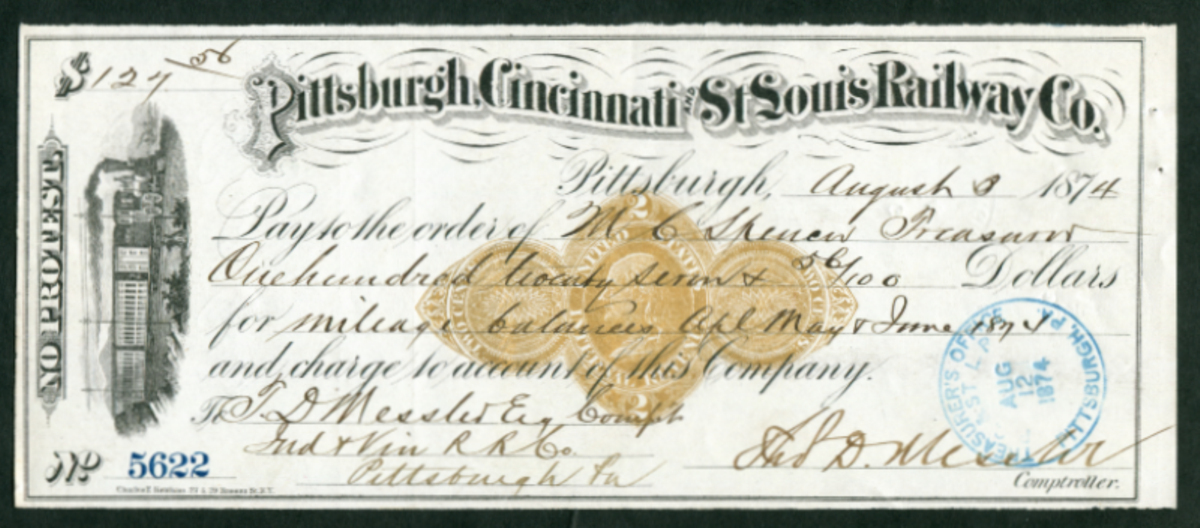 $127 56
Pittsburgh, Cincinnati AND St Louis Railway Co.
NO PROTEST.
Pittsburgh, August 8 1874
Pay to the order of M C Spencer Treasurer
One hundred twenty seven & 56/100 Dollars
for mileage balances Apl May & June 1874
and charge to account of this Company.
To T. D. Messler Esq Compt
Ind & Vin R. R. Co.
Pittsburgh Pa
No 5622
Thos D. Messler
Comptroller.
2
UNITED STATES
2
TREASURER'S OFFICE
ST L
AUG
12
1874
PITTSBURGH, PA.